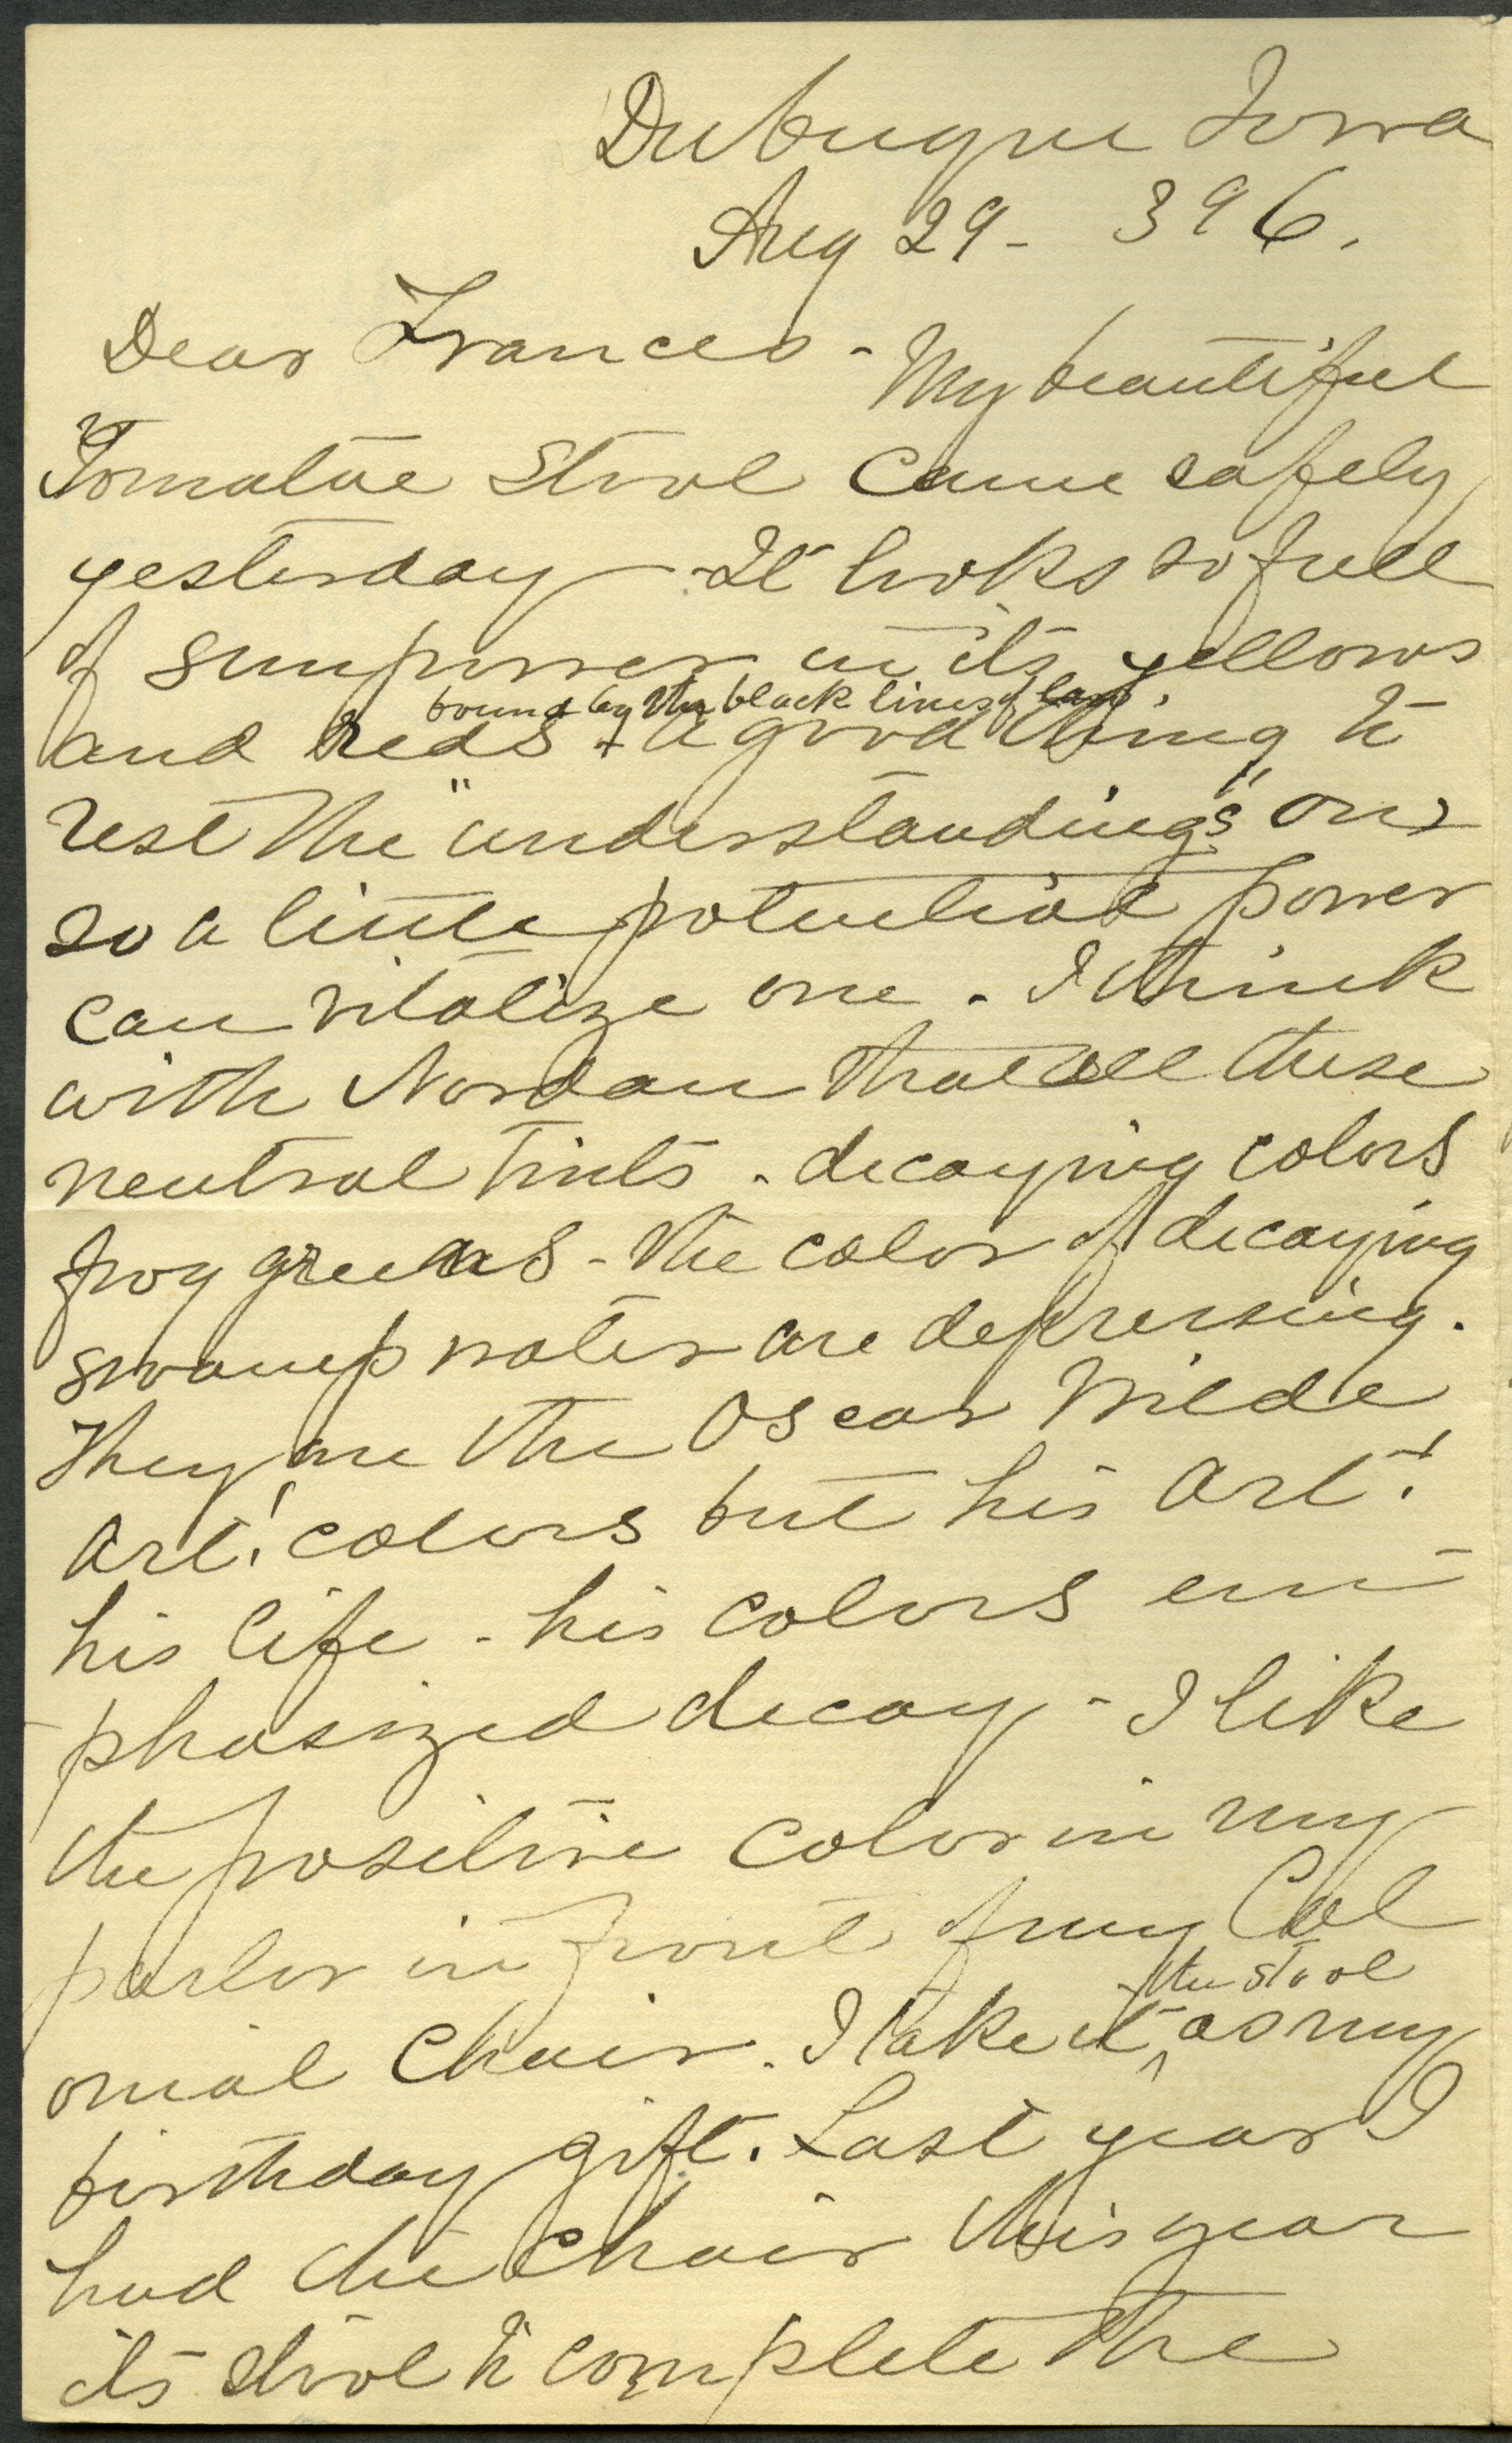 Dubuque Iowa
Aug 29 - 396.
Dear Frances - My beautiful
Tomatoe Stool came safely
yesterday - It looks so full
of sunpower in its yellows
bound by the black lines of law
and reds + a good thing to
rest the "understandings" on
so a little potential power
can vitalize one. I think
with Nordau that all these
neutral tints - decaying colors
frog greens - the color of decaying
swamp water are depressing.
They are the Oscar Wilde
art! colors but his art!
his life - his colors em-
phasized decay - I like
the positive color in my
parlor in front of my Col
the stool
onial chair. I take it ^ as my
birthday gift. Last year I
had the chair this year
its stool to complete the